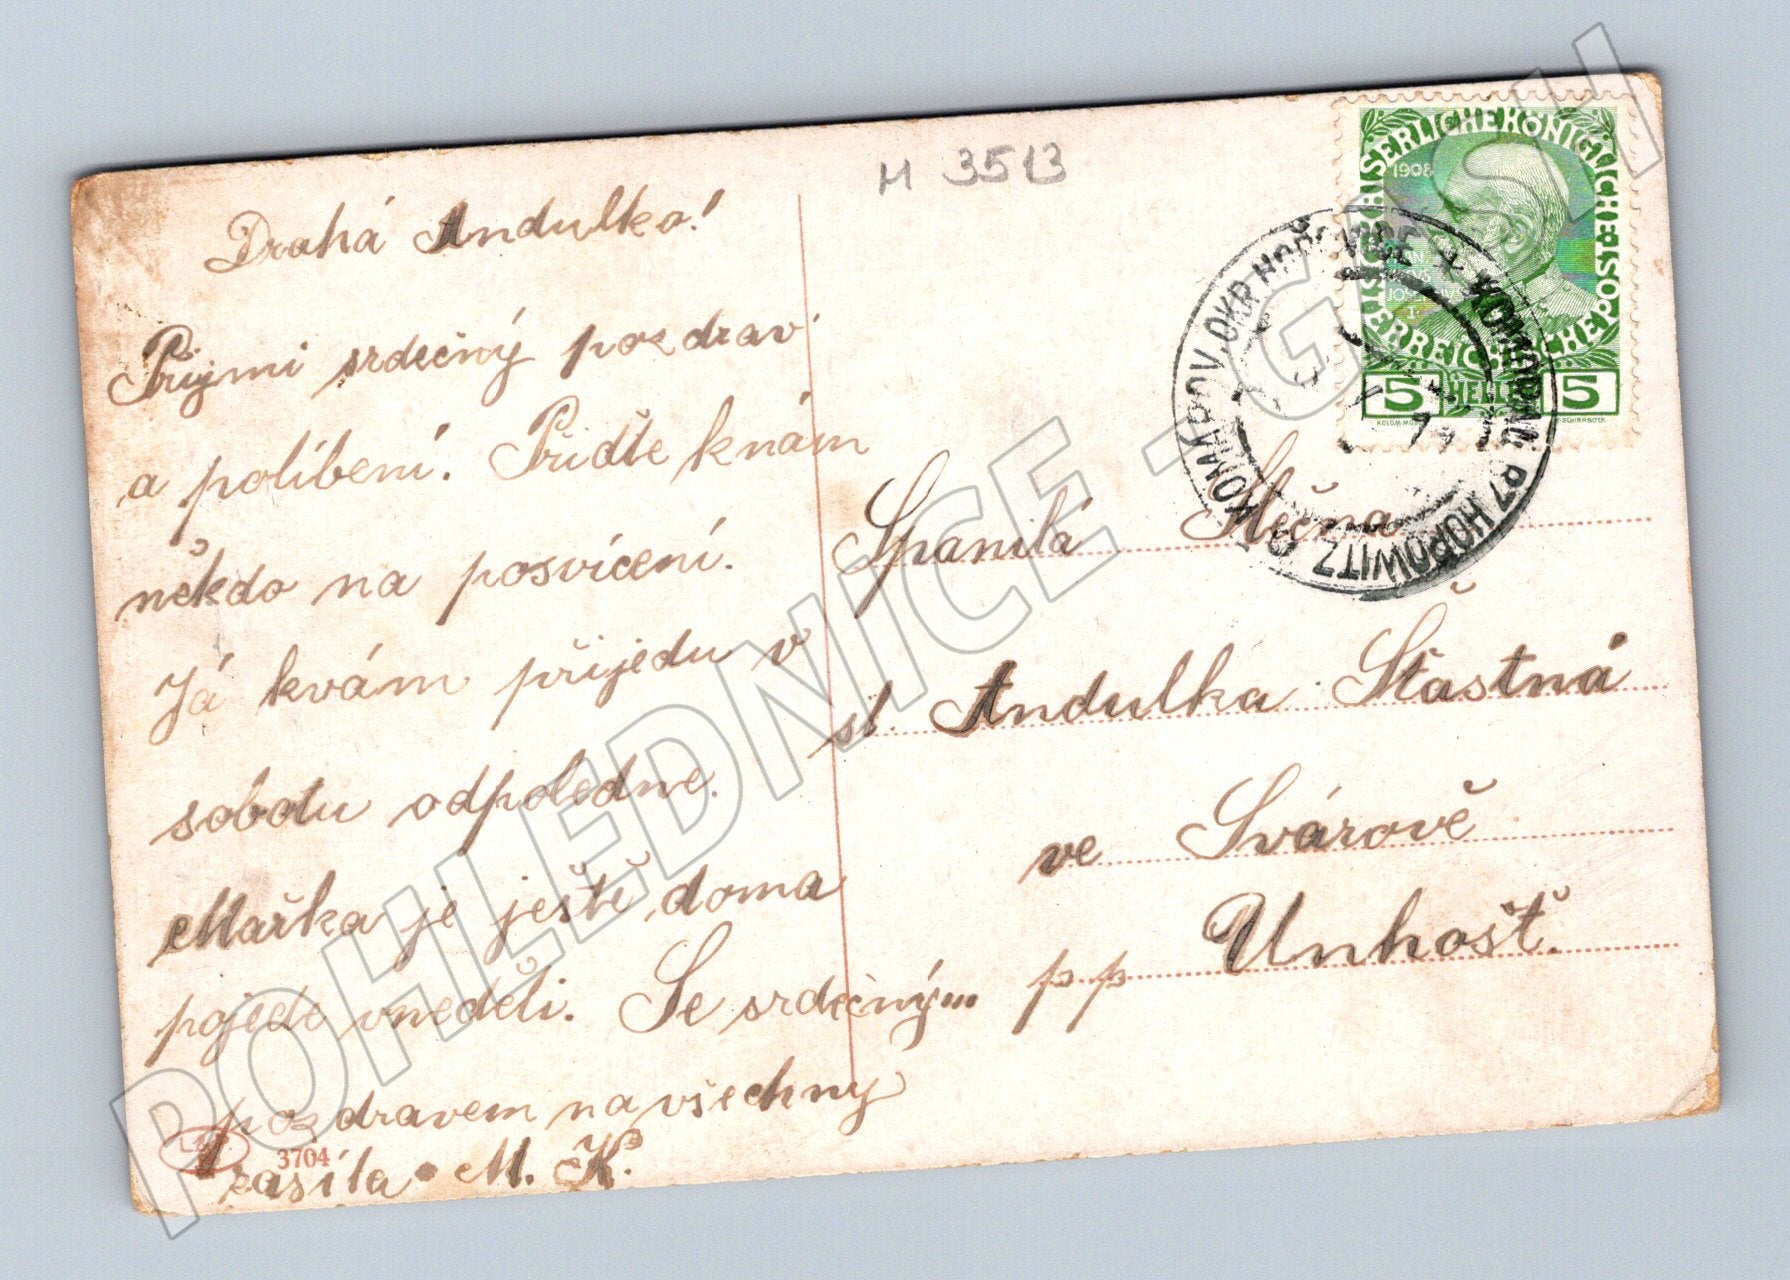 M 3513
Drahá Andulko!
Přijmi srdečný pozdrav
a políbení. Přiďte k nám
někdo na posvícení.
Já kvám přijedu v
sobotu odpoledne.
Mařka je ještě doma
pojede vneděli. Se srdečným
pozdravem na všechny
zasíla M. K.
L.&P.
3704
KAISERLICHE KÖNIGLICHE
ÖSTERREICHISCHE POST
1908
5 HELLER 5
KOMÁROV, OKR. HOŘOVICE * KOMOROW BZ HOROWITZ
Spanilá Slečna
sl. Andulka Šťastná
ve Svárově
pp Unhošť.
POHLEDNICE - GASH